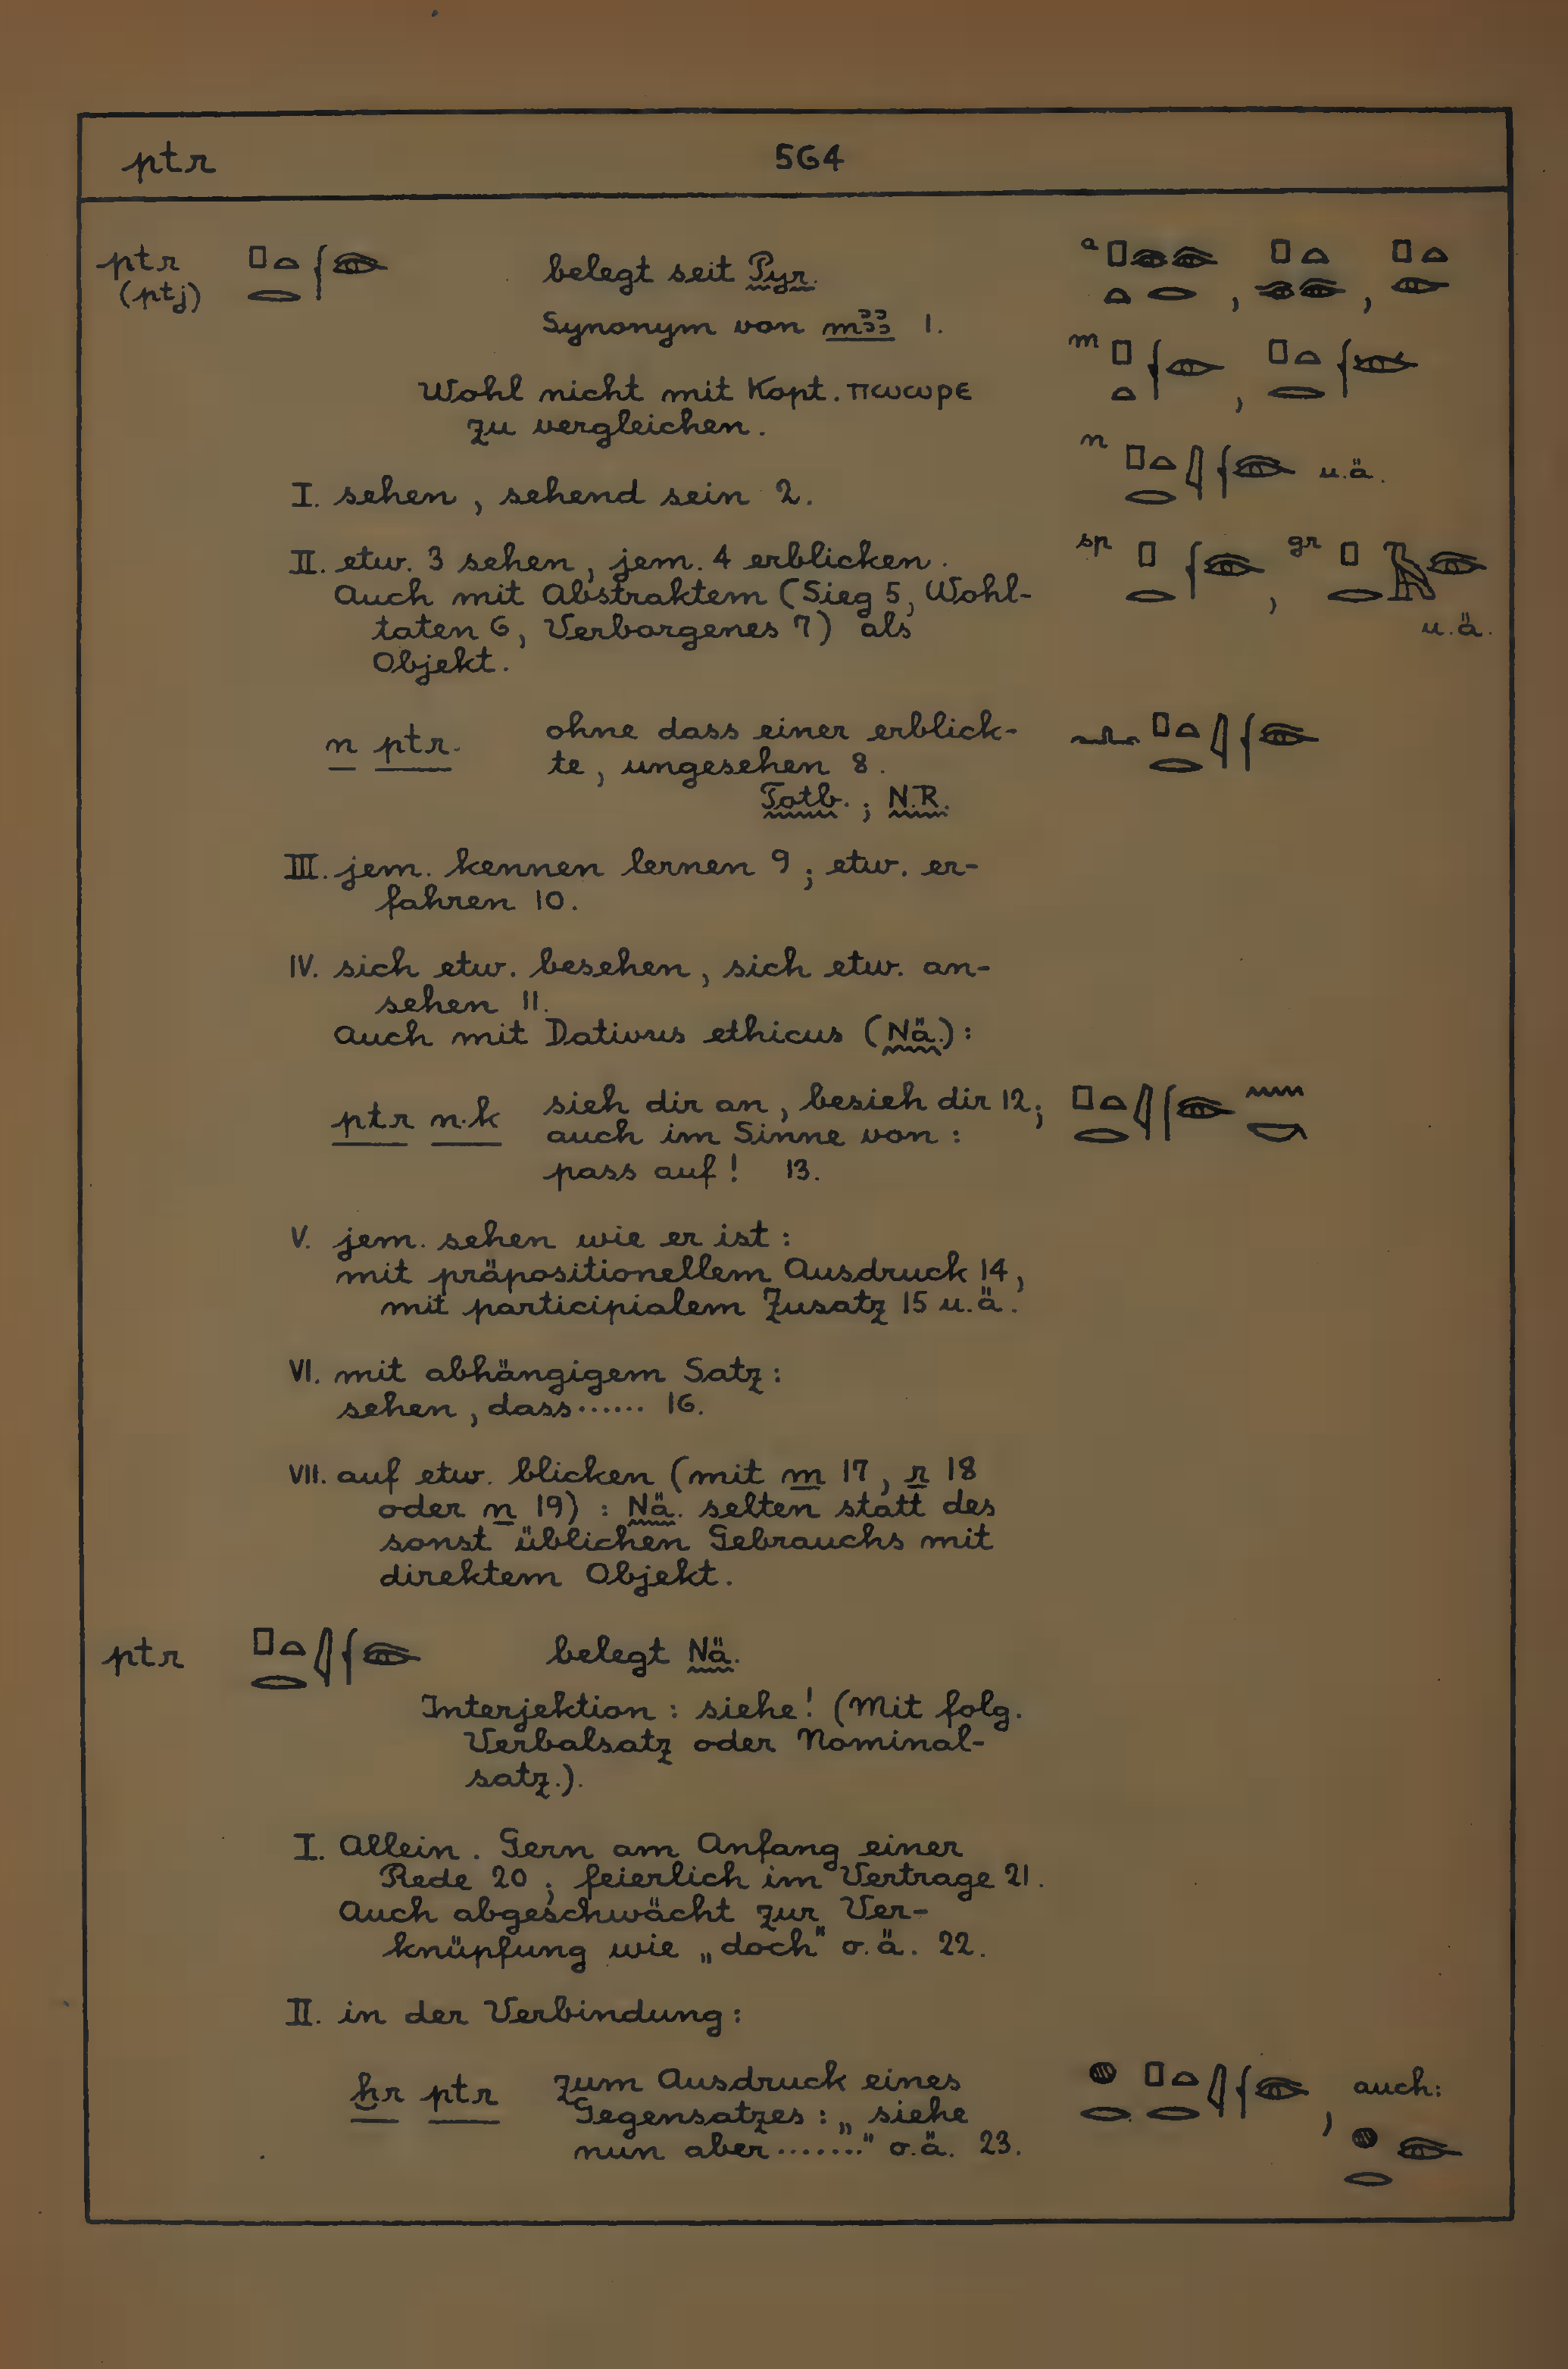 ptr 564
ptr belegt seit Pyr.
(ptj)
Synonym von mꜣꜣ 1.
Wohl nicht mit Kopt. ⲡⲱⲱⲣⲉ
zu vergleichen.
I. sehen, sehend sein 2.
II. etw. 3 sehen, jem. 4 erblicken.
Auch mit Abstraktem (Sieg 5, Wohl-
taten 6, Verborgenes 7) als
Objekt.
a , ,
m ,
n u.ä.
sp , gr
u.ä.
n ptr. ohne dass einer erblick-
te, ungesehen 8.
Totb.; N.R.
III. jem. kennen lernen 9; etw. er-
fahren 10.
IV. sich etw. besehen, sich etw. an-
sehen 11.
Auch mit Dativus ethicus (Nä.):
ptr n.k sieh dir an, besieh dir 12;
auch im Sinne von:
pass auf! 13.
V. jem. sehen wie er ist:
mit präpositionellem Ausdruck 14,
mit participialem Zusatz 15 u.ä.
VI. mit abhängigem Satz:
sehen, dass...... 16.
VII. auf etw. blicken (mit m 17, r 18
oder n 19): Nä. selten statt des
sonst üblichen Gebrauchs mit
direktem Objekt.
ptr belegt Nä.
Interjektion: siehe! (Mit folg.
Verbalsatz oder Nominal-
satz.).
I. Allein. Gern am Anfang einer
Rede 20; feierlich im Vertrage 21.
Auch abgeschwächt zur Ver-
knüpfung wie „doch" o.ä. 22.
II. in der Verbindung:
ḫr ptr zum Ausdruck eines , auch:
Gegensatzes: „siehe
nun aber......." o.ä. 23.